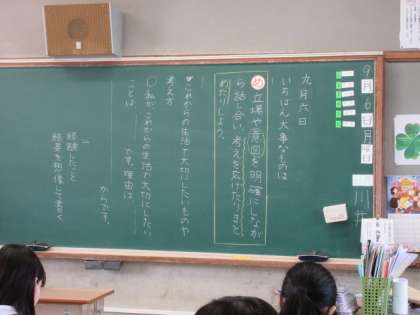 9月6日月曜日
九月六日
いちばん大事なものは
め 立場や意図を明確にしなが
ら話し合い、考えを広げたりまとめたりしよう。
・これからの生活で大切にしたいものや
考え方
○私がこれからの生活で大切にしたい
ことは、
です。理由は、
からです。
経験したこと
結果を想像して書く